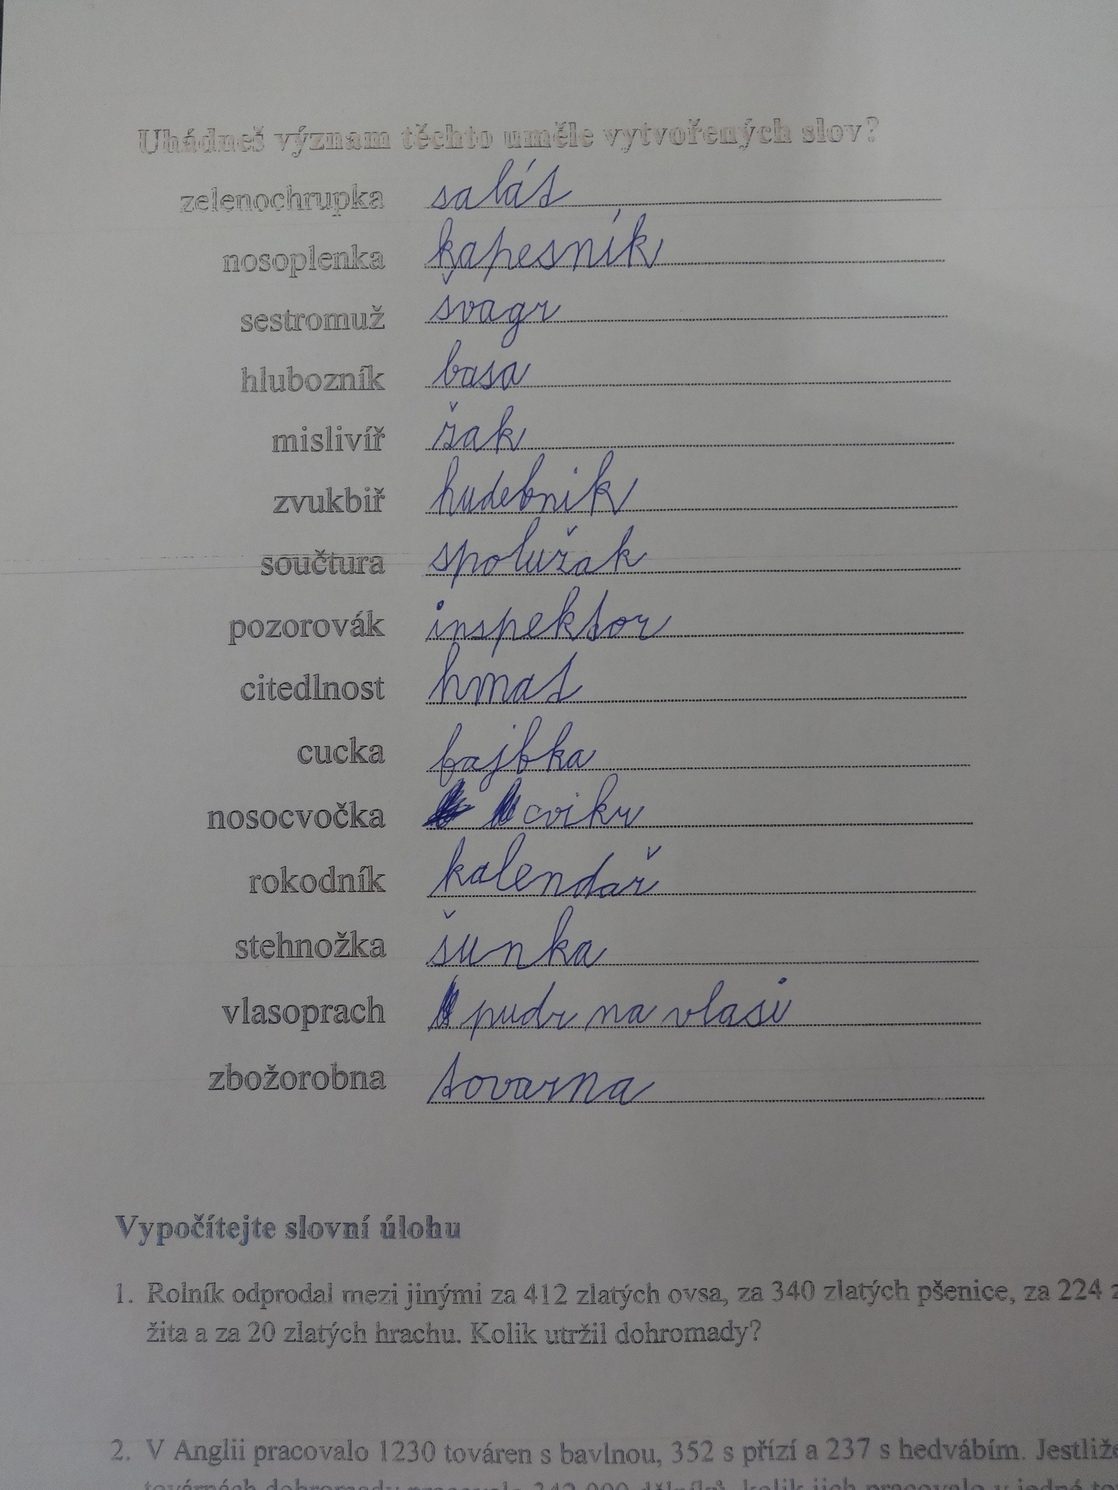 Uhádneš význam těchto uměle vytvořených slov?
zelenochrupka salát
nosoplenka kapesník
sestromuž švagr
hlubozník basa
mislivíř žak
zvukbiř hudebnik
součtura spolužak
pozorovák inspektor
citedlnost hmat
cucka fajfka
nosocvočka cvikr
rokodník kalendař
stehnožka šunka
vlasoprach pudr na vlasi
zbožorobna tovarna
Vypočítejte slovní úlohu
1. Rolník odprodal mezi jinými za 412 zlatých ovsa, za 340 zlatých pšenice, za 224
žita a za 20 zlatých hrachu. Kolik utržil dohromady?
2. V Anglii pracovalo 1230 továren s bavlnou, 352 s přízí a 237 s hedvábím. Jestliže